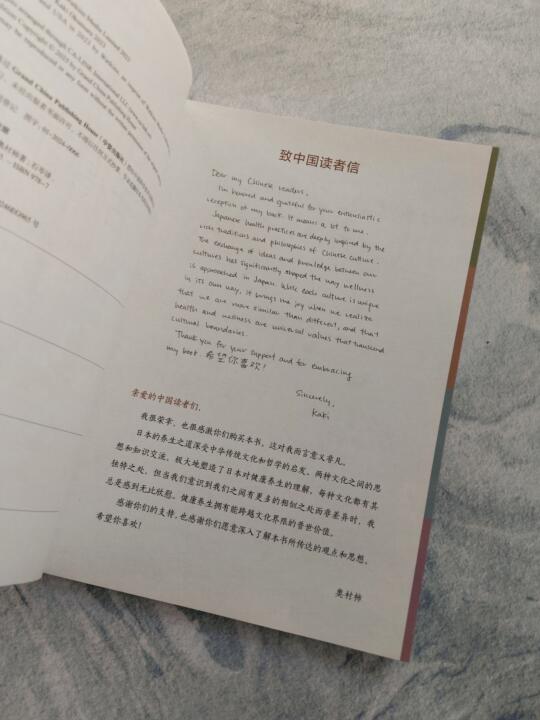 Kaki Okumura 2023
arranged through CA-LINK International LLC
Copyright © 2025 by Grand China Publishing House
Grand China Publishing House
致中国读者信
Dear my Chinese readers,
I'm honored and grateful for your enthusiastic
reception of my book. It means a lot to me.
Japanese health practices are deeply inspired by the
rich traditions and philosophies of Chinese culture.
The exchange of ideas and knowledge between our
cultures has significantly shaped the way wellness
is approached in Japan. While each culture is unique
in its own way, it brings me joy when we realize
that we are more similar than different, and that
health and wellness are universal values that transcend
cultural boundaries.
Thank you for your support and for embracing
my book. 希望你喜欢!
Sincerely,
Kaki
亲爱的中国读者们,
我很荣幸,也很感激你们购买本书,这对我而言意义非凡。
日本的养生之道深受中华传统文化和哲学的启发。两种文化之间的思
想和知识交流,极大地塑造了日本对健康养生的理解,每种文化都有其
独特之处,但当我们意识到我们之间有更多的相似之处而非差异时,我
总是感到无比欣慰。健康养生拥有能跨越文化界限的普世价值。
感谢你们的支持,也感谢你们愿意深入了解本书所传达的观点和思想。
希望你喜欢!
奥村柿